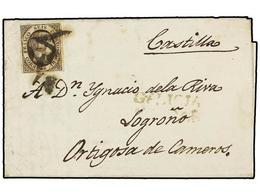 Castilla
A Dn. Ygnacio de la Riva
GALICIA
Logroño
Ortigosa de Cameros.